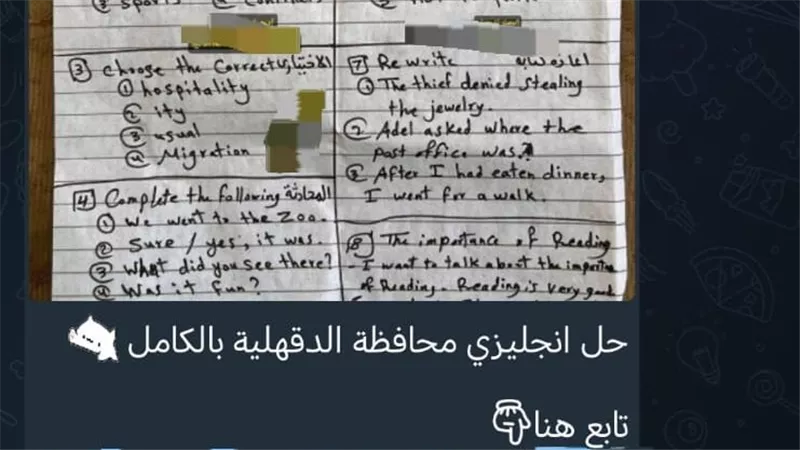 ③ Choose the Correct الاختيار
① hospitality
② ity
③ usual
④ Migration
[4] Complete the following المحادثة
① We went to the Zoo.
② Sure / yes, it was.
③ What did you see there?
④ Was it fun?
[7] Rewrite
① The thief denied stealing
the jewelry.
② Adel asked where the
post office was.
③ After I had eaten dinner,
I went for a walk.
[8] The importance of Reading
- I want to talk about the importance
of Reading. Reading is very good
حل انجليزي محافظة الدقهلية بالكامل
تابع هنا